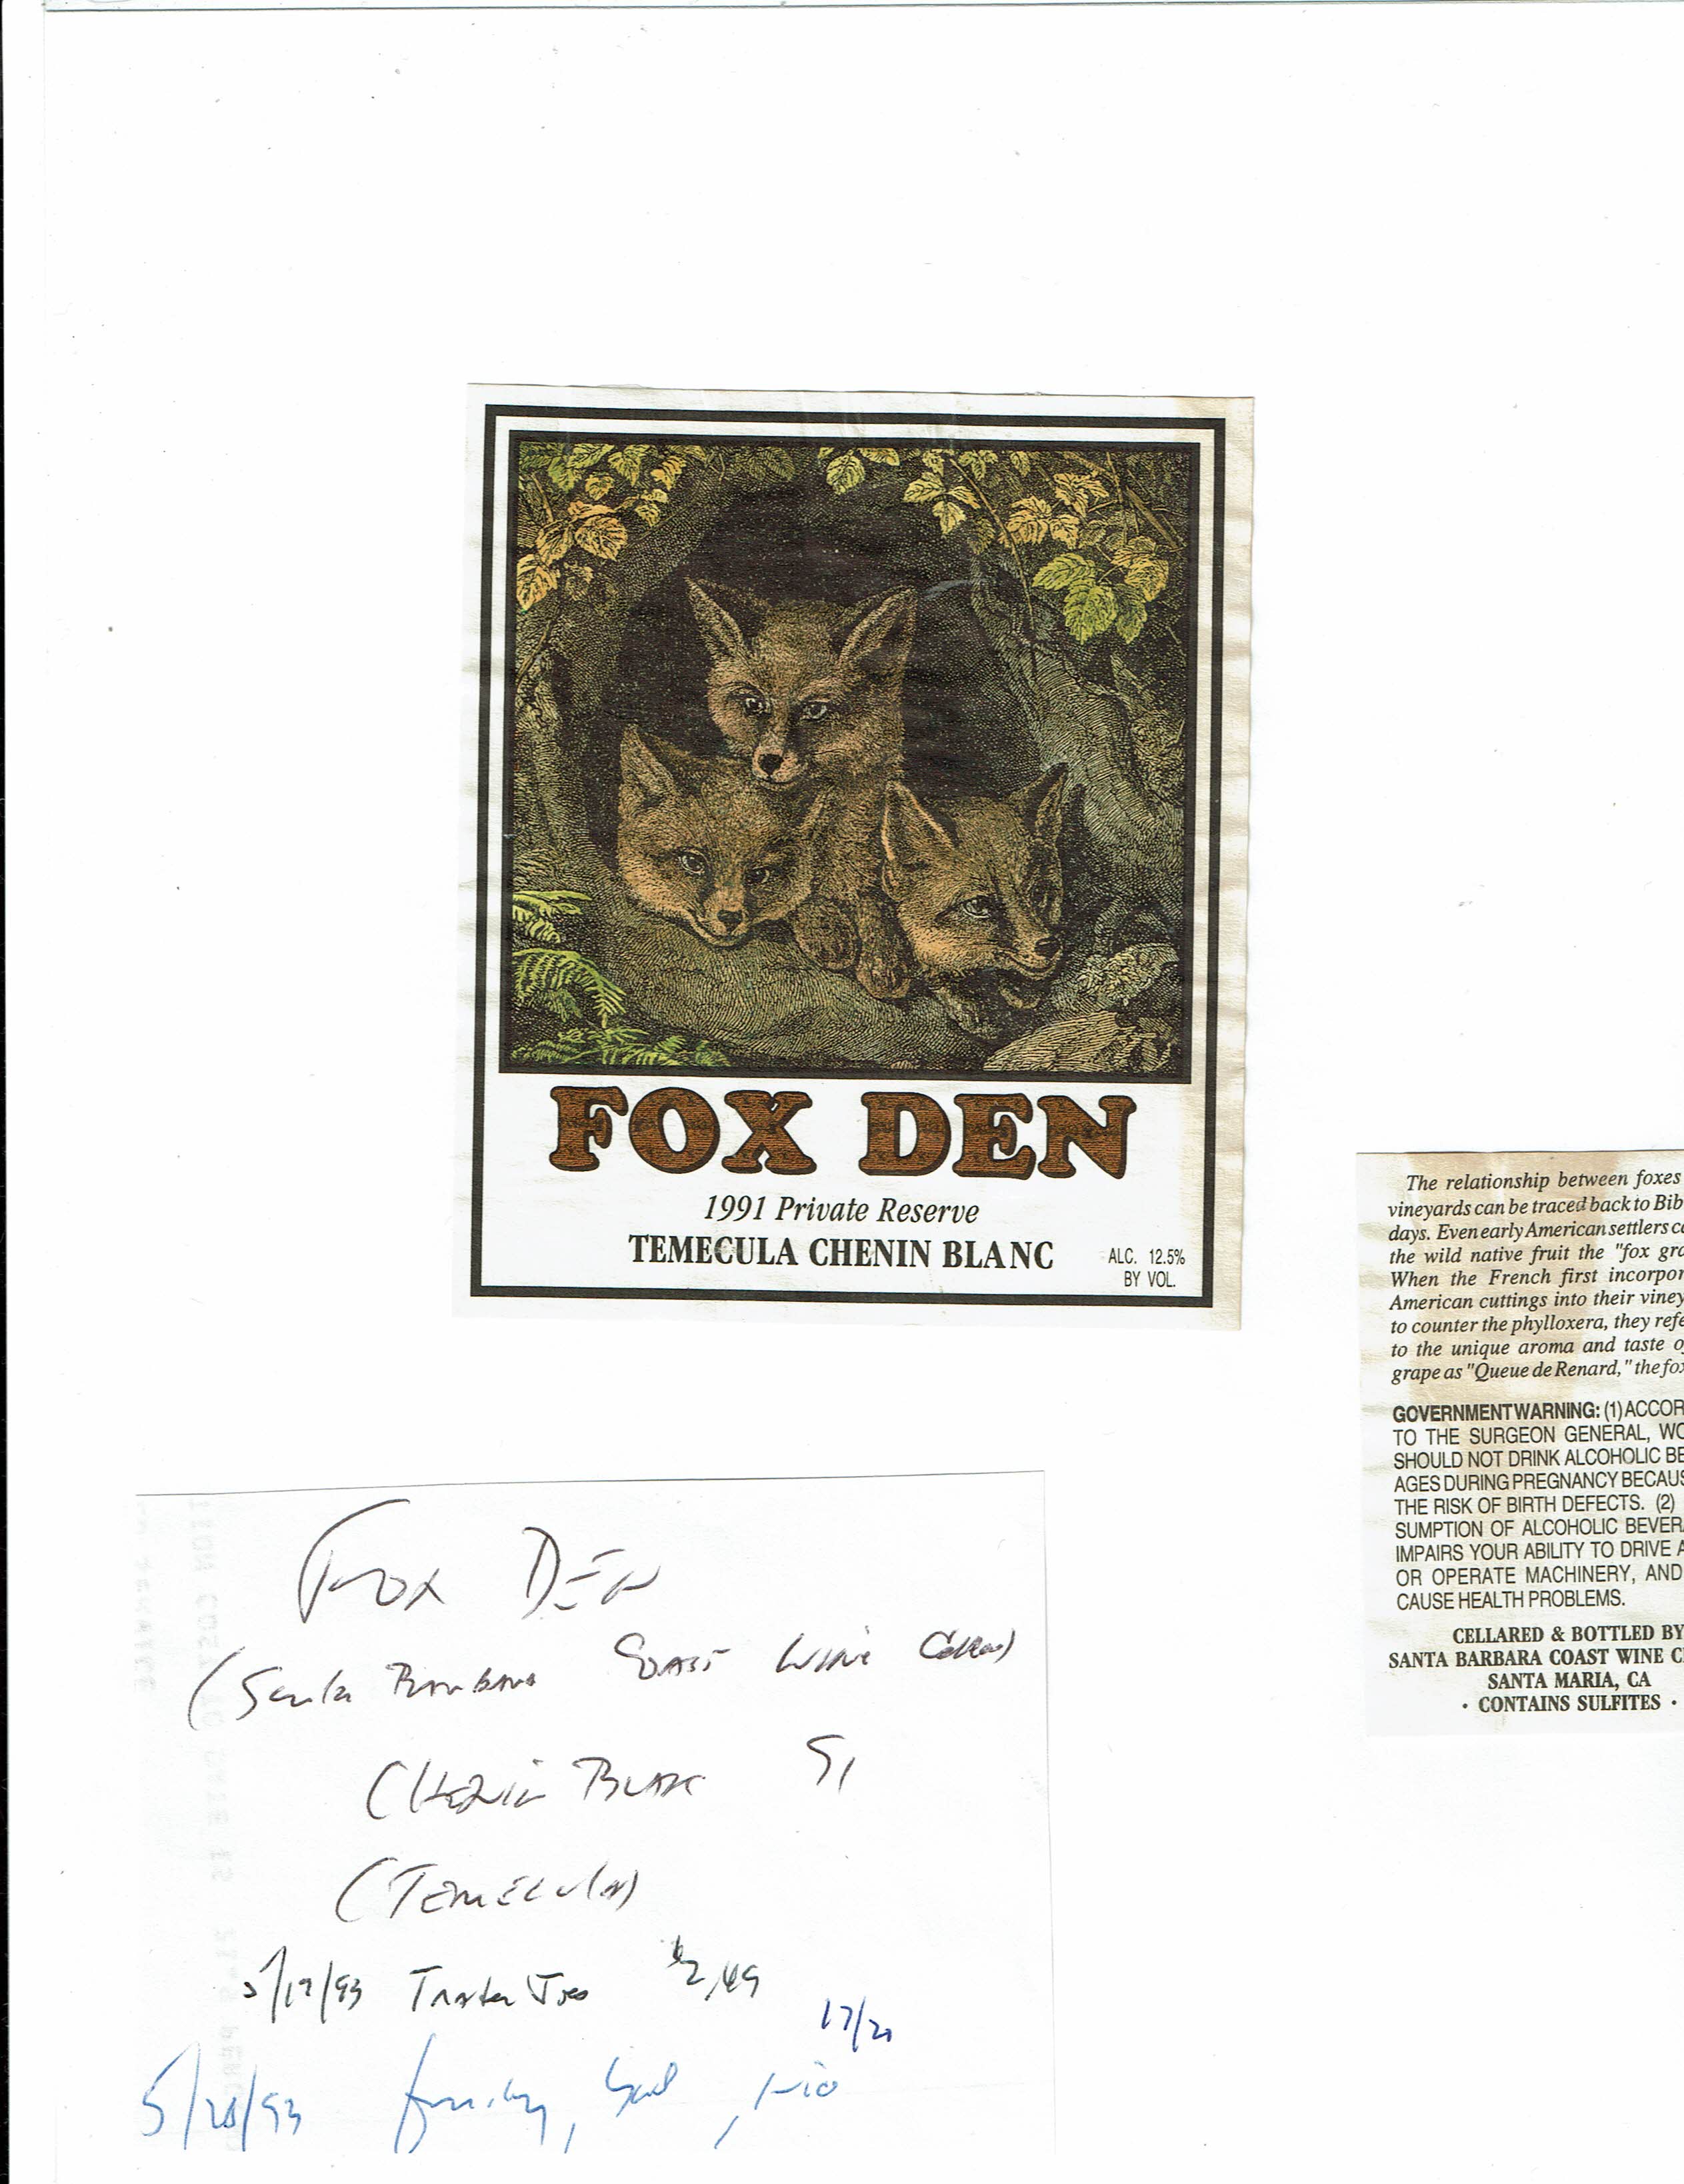 FOX DEN
1991 Private Reserve
TEMECULA CHENIN BLANC
ALC. 12.5%
BY VOL.
The relationship between foxes
vineyards can be traced back to Bib
days. Even early American settlers c
the wild native fruit the "fox gra
When the French first incorpor
American cuttings into their viney
to counter the phylloxera, they refe
to the unique aroma and taste o
grape as "Queue de Renard," the fox
GOVERNMENT WARNING: (1) ACCOR
TO THE SURGEON GENERAL, WO
SHOULD NOT DRINK ALCOHOLIC BE
AGES DURING PREGNANCY BECAUS
THE RISK OF BIRTH DEFECTS. (2)
SUMPTION OF ALCOHOLIC BEVERA
IMPAIRS YOUR ABILITY TO DRIVE A
OR OPERATE MACHINERY, AND
CAUSE HEALTH PROBLEMS.
CELLARED & BOTTLED BY
SANTA BARBARA COAST WINE C
SANTA MARIA, CA
· CONTAINS SULFITES ·
FOX DEN
(Santa Barbara COAST WINE Cellars)
CHENIN BLANC 91
(TEMECULA)
5/17/93 Trader Joes $2.49
17/20
5/28/93